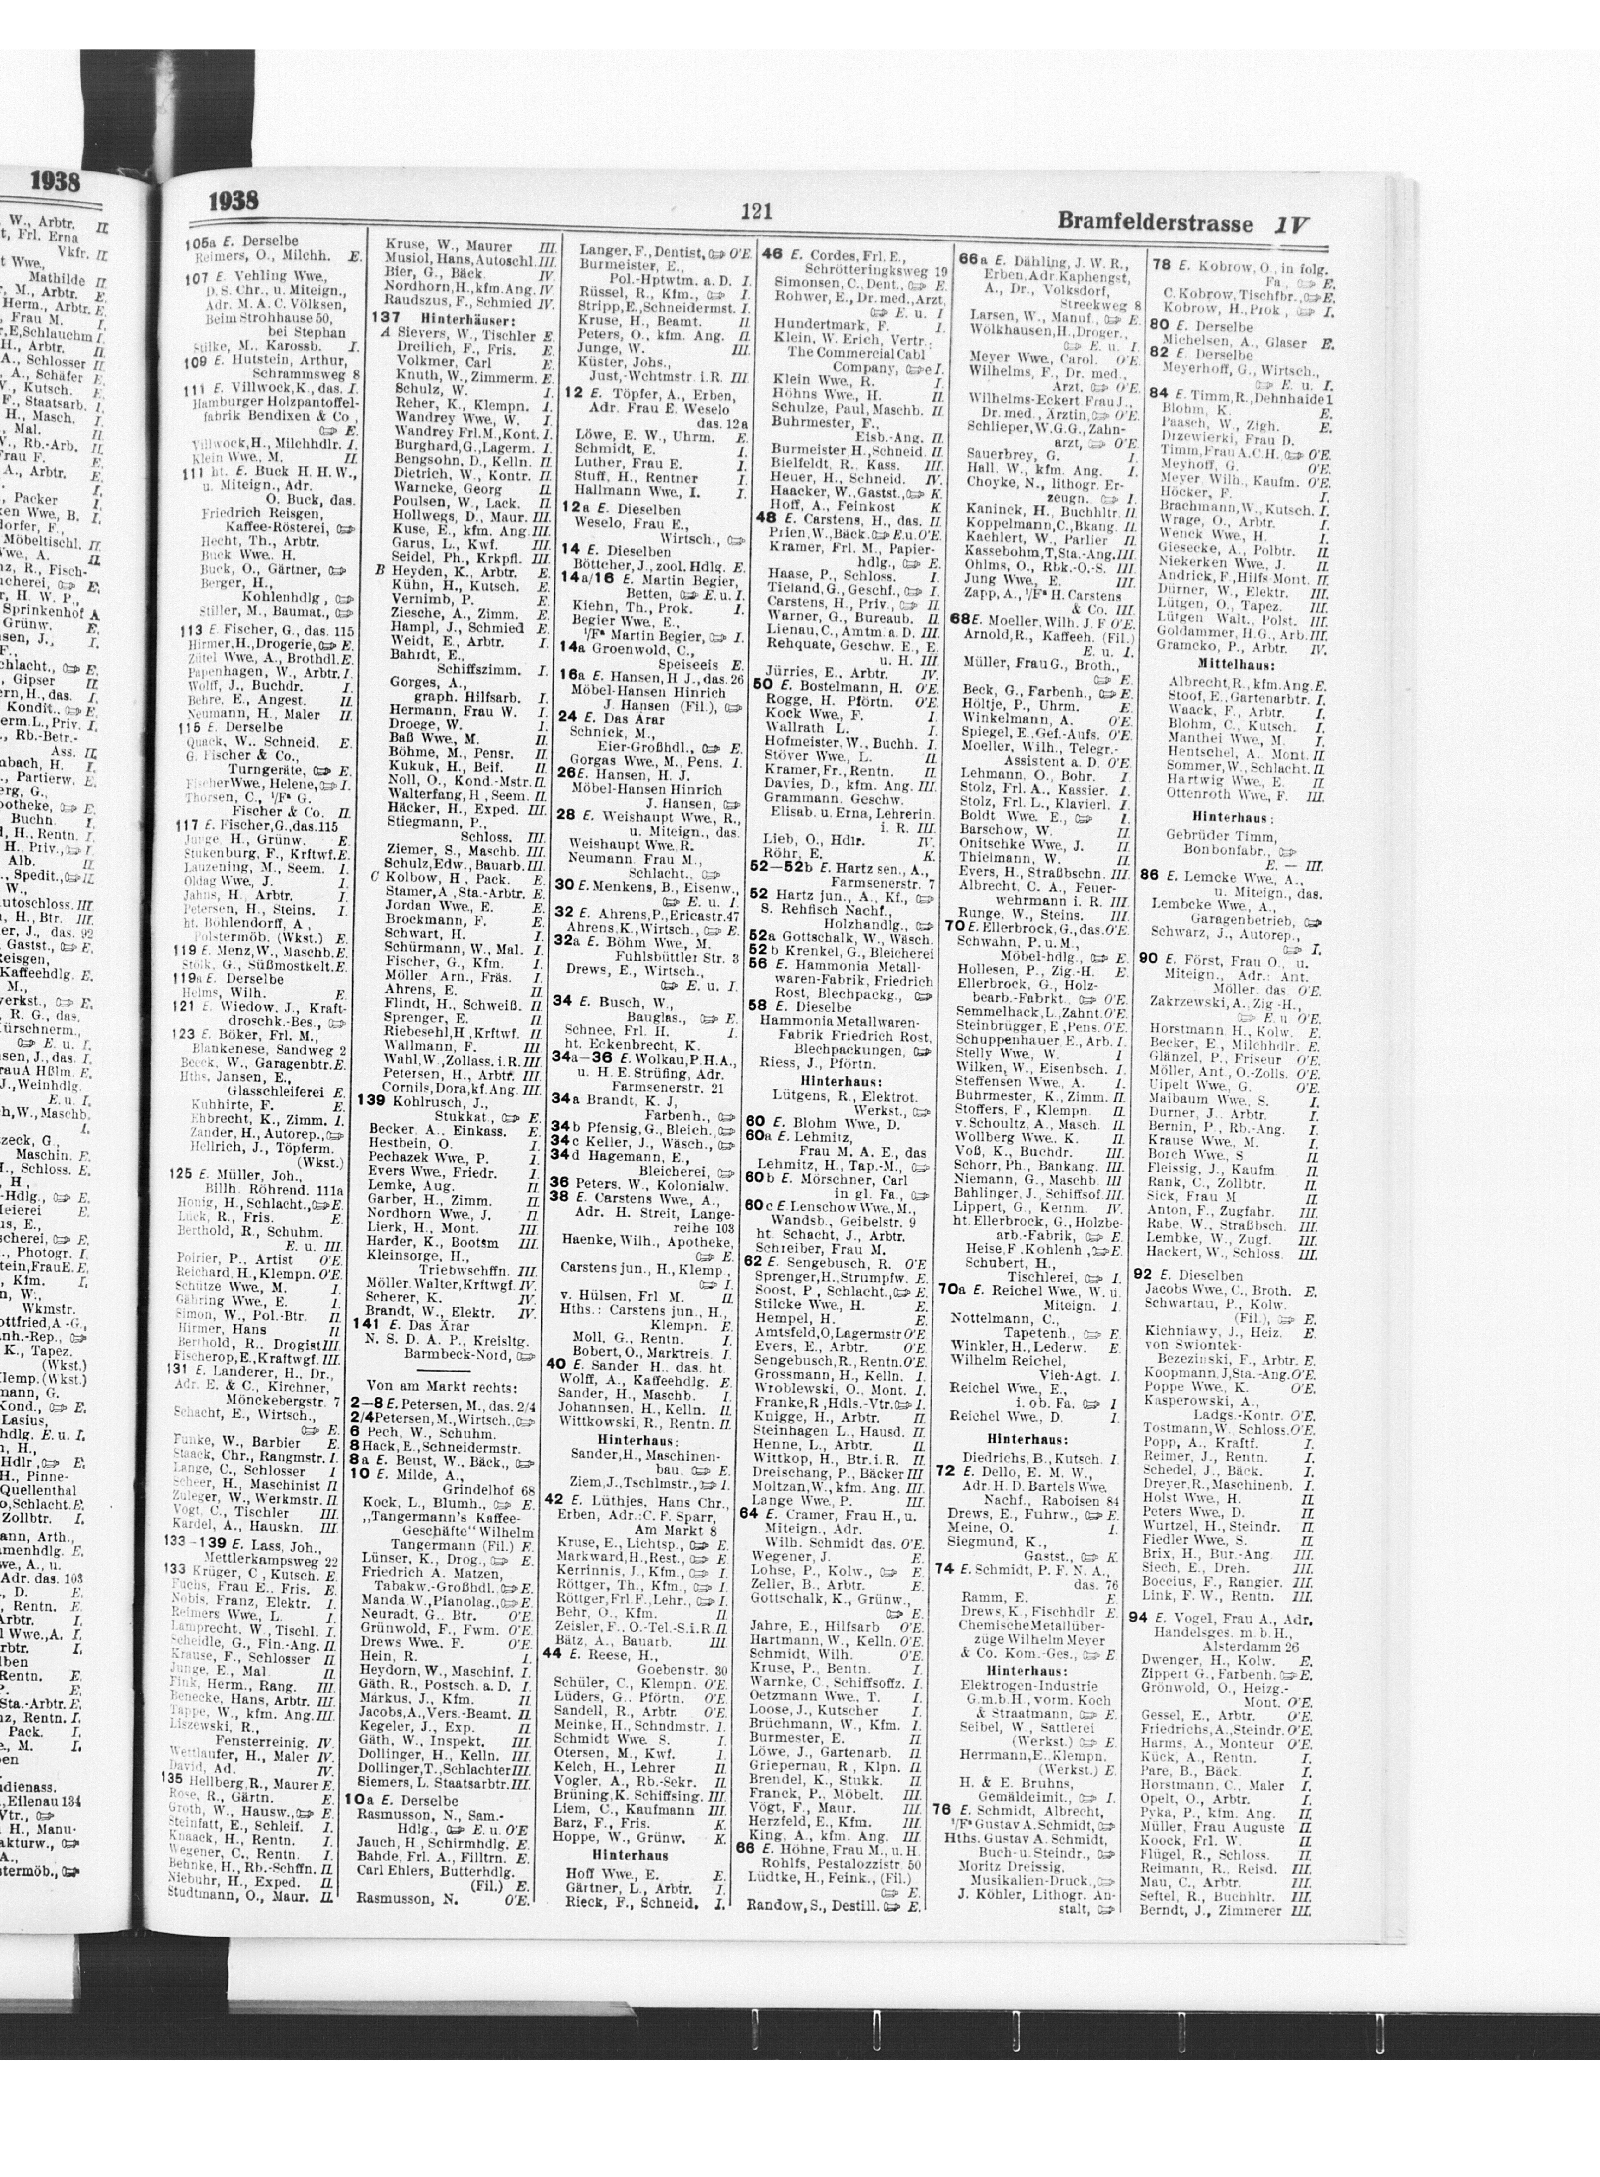 1938
W., Arbtr. II.
t, Frl. Erna
Vkfr. II.
t Wwe.,
Mathilde II.
1938
121
Bramfelderstrasse IV
105a E. Derselbe
Reimers, O., Milchh. E.
107 E. Vehling Wwe.,
D. S. Chr., u. Miteign.,
Adr. M. A. C. Völksen,
Beim Strohhause 50,
bei Stephan
Stilke, M.. Karossb. I.
109 E. Hutstein, Arthur,
Schrammsweg 8
111 E. Villwock, K., das. I.
Hamburger Holzpantoffel-
fabrik Bendixen & Co,
E.
Villwock, H., Milchhdlr. I.
Klein Wwe. M. II.
111 ht. E. Buck H. H. W.,
u. Miteign., Adr.
O. Buck, das.
Friedrich Reisgen,
Kaffee-Rösterei,
Hecht, Th., Arbtr.
Buck Wwe. H.
Buck, O., Gärtner,
Berger, H.,
Kohlenhdlg,
Stiller, M., Baumat.,
113 E. Fischer, G., das. 115
Hirmer, H., Drogerie, E.
Zütel Wwe., A., Brothdl. E.
Papenhagen, W., Arbtr. I.
Wolff, J., Buchdr. I.
Behre, E., Angest. II.
Neumann, H., Maler II.
115 E. Derselbe
Quack, W.. Schneid. E.
G. Fischer & Co.,
Turngeräte, E.
Fischer Wwe., Helene, I.
Thorsen, C., i/Fa G.
Fischer & Co. II.
117 E. Fischer, G., das. 115
Junge, H., Grünw. E.
Stukenburg, F., Krftwf. E.
Lauzening, M., Seem. I.
Oldag Wwe., J. I.
Jahns, H., Arbtr. I.
Petersen, H., Steins. I.
ht. Bohlendorff, A.,
Polstermöb. (Wkst.) E.
119 E. Menz, W., Maschb. E.
Stölk, G., Süßmostkelt. E.
119a E. Derselbe
Helms, Wilh. E.
121 E. Wiedow, J., Kraft-
droschk.-Bes.,
123 E. Böker, Frl. M.,
Blankenese, Sandweg 2
Beeck, W., Garagenbtr. E.
Hths. Jansen, E.,
Glasschleiferei E.
Kuhhirte, F. E.
Ehbrecht, K., Zimm. I.
Zander, H., Autorep.,
Hellrich, J., Töpferm.
(Wkst.)
125 E. Müller, Joh.,
Billh. Röhrend. 111a
Honig, H., Schlacht., E.
Lück, R., Fris. E.
Berthold, R., Schuhm.
E. u. III.
Poirier, P., Artist O'E.
Reichard, H., Klempn. O'E.
Schütze Wwe., M. I.
Gähring Wwe., E. I.
Simon, W., Pol.-Btr. II.
Hirmer, Hans II.
Berthold, R.. Drogist III.
Fischerop, E., Kraftwgf. III.
131 E. Landerer, H.. Dr.,
Adr. E. & C., Kirchner,
Mönckebergstr. 7
Schacht, E., Wirtsch.,
E.
Funke, W., Barbier E.
Staack, Chr., Rangmstr. I.
Lange, C., Schlosser I
Scheer, H., Maschinist II
Zuleger, W., Werkmstr. II.
Vogt, C., Tischler III.
Kardel, A., Hauskn. III.
133-139 E. Lass, Joh.,
Mettlerkampsweg 22
133 Krüger, C, Kutsch. E.
Fuchs, Frau E.. Fris. E.
Nobis, Franz, Elektr. I.
Reimers Wwe., L. I.
Lamprecht, W., Tischl. I.
Scheidle, G., Fin.-Ang. II.
Krause, F., Schlosser II.
Junge, E., Mal. II.
Fink, Herm., Rang. III.
Benecke, Hans, Arbtr. III.
Tappe, W., kfm. Ang. III.
Liszewski, R.,
Fensterreinig. IV.
Wettlaufer, H., Maler IV.
David, Ad. IV.
135 Hellberg, R., Maurer E.
Rose, R., Gärtn. E.
Groth, W., Hausw., E.
Steinfatt, E., Schleif. I.
Knaack, H., Rentn. I.
Wegener, C., Rentn. I.
Behnke, H., Rb.-Schffn. II.
Niebuhr, H., Exped. II.
Studtmann, O., Maur. II.
Kruse, W., Maurer III.
Musiol, Hans, Autoschl. III.
Bier, G., Bäck. IV.
Nordhorn, H., kfm. Ang. IV.
Raudszus, F., Schmied IV.
137 Hinterhäuser:
A Sievers, W., Tischler E.
Dreilich, F., Fris. E.
Volkmer, Carl E.
Knuth, W., Zimmerm. E.
Schulz, W. I.
Reher, K., Klempn. I.
Wandrey Wwe., W. I.
Wandrey Frl. M., Kont. I.
Burghard, G., Lagerm. I.
Bengsohn, D., Kelln. II.
Dietrich, W., Kontr. II.
Warncke, Georg II.
Poulsen, W., Lack. II.
Hollwegs, D., Maur. III.
Kuse, E., kfm. Ang. III.
Garus, L., Kwf. III.
Seidel, Ph., Krkpfl. III.
B Heyden, K., Arbtr. E.
Kühn, H., Kutsch. E.
Vernimb, P. E.
Ziesche, A., Zimm. E.
Hampl, J., Schmied E.
Weidt, E., Arbtr. I.
Bahrdt, E.,
Schiffszimm. I.
Gorges, A.,
graph. Hilfsarb. I.
Hermann, Frau W. I.
Droege, W. I.
Baß Wwe., M. II.
Böhme, M., Pensr. II.
Kukuk, H., Beif. II.
Noll, O., Kond.-Mstr. II.
Walterfang, H, Seem. II.
Häcker, H., Exped. III.
Stiegmann, P.,
Schloss. III.
Ziemer, S., Maschb. III.
Schulz, Edw., Bauarb. III.
C Kolbow, H, Pack. E.
Stamer, A, Sta.-Arbtr. E.
Jordan Wwe., E. E.
Brockmann, F. E.
Schwart, H. I.
Schürmann, W., Mal. I.
Fischer, G., Kfm. I.
Möller Arn., Fräs. I.
Ahrens, E. II.
Flindt, H., Schweiß. II.
Sprenger, E. II.
Riebesehl, H, Krftwf. II.
Wallmann, F. III.
Wahl, W., Zollass. i. R. III.
Petersen, H., Arbtr. III.
Cornils, Dora, kf. Ang. III.
139 Kohlrusch, J.,
Stukkat., E.
Becker, A.. Einkass. E.
Hestbein, O. I.
Pechazek Wwe., P. I.
Evers Wwe., Friedr. I.
Lemke, Aug. II.
Garber, H., Zimm. II.
Nordhorn Wwe., J. II.
Lierk, H., Mont. III.
Harder, K., Bootsm III.
Kleinsorge, H.,
Triebwschffn. III.
Möller, Walter, Krftwgf. IV.
Scherer, K. IV.
Brandt, W., Elektr. IV.
141 E. Das Ärar
N. S. D. A. P., Kreisltg.
Barmbeck-Nord,
Von am Markt rechts:
2—8 E. Petersen, M., das. 2/4
2/4 Petersen, M., Wirtsch.,
6 Pech, W., Schuhm.
8 Hack, E., Schneidermstr.
8a E. Beust, W., Bäck.,
10 E. Milde, A.,
Grindelhof 68
Kock, L., Blumh., E.
„Tangermann's Kaffee-
Geschäfte" Wilhelm
Tangermann (Fil.) E.
Lünser, K., Drog., E.
Friedrich A. Matzen,
Tabakw.-Großhdl. E.
Manda, W., Pianolag., E.
Neuradt, G.. Btr. O'E.
Grünwold, F., Fwm. O'E.
Drews Wwe.. F. O'E.
Hein, R. I.
Heydorn, W., Maschinf. I.
Gäth, R., Postsch. a. D. I.
Markus, J., Kfm. II.
Jacobs, A., Vers.-Beamt. II.
Kegeler, J., Exp. II.
Gäth, W., Inspekt. III.
Dollinger, H., Kelln. III.
Dollinger, T., Schlachter III.
Siemers, L. Staatsarbtr. III.
10a E. Derselbe
Rasmusson, N., Sam.-
Hdlg., E. u. O'E
Jauch, H., Schirmhdlg. E.
Bahde, Frl. A., Filltrn. E.
Carl Ehlers, Butterhdlg.
(Fil.) E.
Rasmusson, N. O'E.
Langer, F., Dentist, O'E.
Burmeister, E.,
Pol.-Hptwtm. a. D. I.
Rüssel, R., Kfm., I.
Stripp, E., Schneidermst. I.
Kruse, H., Beamt. II.
Peters, O., kfm. Ang. II.
Junge, W. III.
Küster, Johs.,
Just.-Wchtmstr. i. R. III.
12 E. Töpfer, A., Erben,
Adr. Frau E. Weselo
das. 12a
Löwe, E. W., Uhrm. E.
Schmidt, E. I.
Luther, Frau E. I.
Stuff, H., Rentner I.
Hallmann Wwe., I. I.
12a E. Dieselben
Weselo, Frau E.,
Wirtsch.,
14 E. Dieselben
Böttcher, J., zool. Hdlg. E.
14a/16 E. Martin Begier,
Betten, E. u. I.
Kiehn, Th., Prok. I.
Begier Wwe., E.,
i/Fa Martin Begier, I.
14a Groenwold, C.,
Speiseeis E.
16a E. Hansen, H J., das. 26
Möbel-Hansen Hinrich
J. Hansen (Fil.),
24 E. Das Ärar
Schnick, M.,
Eier-Großhdl., E.
Gorgas Wwe., M., Pens. I.
26 E. Hansen, H. J.
Möbel-Hansen Hinrich
J. Hansen,
28 E. Weishaupt Wwe., R.,
u. Miteign., das.
Weishaupt Wwe. R.
Neumann, Frau M.,
Schlacht.,
30 E. Menkens, B., Eisenw.,
E. u. I.
32 E. Ahrens, P., Ericastr. 47
Ahrens, K., Wirtsch., E.
32a E. Böhm Wwe., M.
Fuhlsbüttler Str. 3
Drews, E., Wirtsch.,
E. u. I.
34 E. Busch, W.,
Bauglas., E.
Schnee, Frl. H. I.
ht. Eckenbrecht, K.
34a—36 E. Wolkau, P. H. A.,
u. H. E. Strüfing, Adr.
Farmsenerstr. 21
34a Brandt, K. J,
Farbenh.,
34b Pfensig, G., Bleich.,
34c Keller, J., Wäsch.,
34d Hagemann, E.,
Bleicherei,
36 Peters, W., Kolonialw.
38 E. Carstens Wwe., A.,
Adr. H. Streit, Lange-
reihe 103
Haenke, Wilh., Apotheke,
E.
Carstens jun., H., Klemp,
I.
v. Hülsen, Frl M. II.
Hths.: Carstens jun., H.,
Klempn. E.
Moll, G., Rentn. I.
Bobert, O., Marktreis. I.
40 E. Sander H.. das. ht.
Wolff, A., Kaffeehdlg. E.
Sander, H., Maschb. I.
Johannsen, H., Kelln. II.
Wittkowski, R., Rentn. II.
Hinterhaus:
Sander, H., Maschinen-
bau. E.
Ziem, J., Tschlmstr., I.
42 E. Lüthjes, Hans Chr.,
Erben, Adr.: C. F. Sparr,
Am Markt 8
Kruse, E., Lichtsp., E.
Markward, H., Rest., E.
Kerrinnis, J., Kfm., I.
Röttger, Th., Kfm., I.
Röttger, Frl. F., Lehr., I.
Behr, O., Kfm. II.
Zeisler, F.. O.-Tel.-S. i. R. II.
Bätz, A., Bauarb. III.
44 E. Reese, H.,
Goebenstr. 30
Schüler, C., Klempn. O'E.
Lüders, G.. Pförtn. O'E.
Sandell, R., Arbtr. O'E.
Meinke, H., Schndmstr. I.
Schmidt Wwe. S. I.
Otersen, M., Kwf. I.
Kelch, H., Lehrer II.
Vogler, A., Rb.-Sekr. II.
Brüning, K. Schiffsing. III.
Liem, C., Kaufmann III.
Barz, F., Fris. K.
Hoppe, W., Grünw. K.
Hinterhaus
Hoff Wwe., E. E.
Gärtner, L., Arbtr. I.
Rieck, F., Schneid. I.
46 E. Cordes, Frl. E.,
Schrötteringksweg 19
Simonsen, C., Dent., E.
Rohwer, E., Dr. med., Arzt,
E. u. I
Hundertmark, F. I.
Klein, W. Erich, Vertr.:
The Commercial Cabl
Company, e I.
Klein Wwe., R. I.
Höhns Wwe., H. II.
Schulze, Paul, Maschb. II.
Buhrmester, F.,
Eisb.-Ang. II.
Burmeister H., Schneid. II.
Bielfeldt, R.. Kass. III.
Heuer, H., Schneid. IV.
Haacker, W., Gastst., K.
Hoff, A., Feinkost K.
48 E. Carstens, H., das. II.
Prien, W., Bäck. E. u. O'E.
Kramer, Frl. M., Papier-
hdlg., E.
Haase, P., Schloss. I.
Tieland, G., Geschf., I.
Carstens, H., Priv., II.
Warner, G., Bureaub. II.
Lienau, C., Amtm. a. D. III.
Rehquate, Geschw. E., E.
u. H. III.
Jürries, E., Arbtr. IV.
50 E. Bostelmann, H. O'E.
Rogge, H. Pförtn. O'E.
Kock Wwe., F. I.
Wallrath L. I.
Hofmeister, W., Buchh. I.
Stöver Wwe., L. II.
Kramer, Fr., Rentn. II.
Davies, D., kfm. Ang. III.
Grammann. Geschw.
Elisab. u. Erna, Lehrerin.
i. R. III.
Lieb, O., Hdlr. IV.
Röhr, E. K.
52—52b E. Hartz sen., A.,
Farmsenerstr. 7
52 Hartz jun., A., Kf.,
S. Rehfisch Nachf.,
Holzhandlg.,
52a Gottschalk, W., Wäsch.
52b Krenkel, G., Bleicherei
56 E. Hammonia Metall-
waren-Fabrik, Friedrich
Rost, Blechpackg.,
58 E. Dieselbe
Hammonia Metallwaren-
Fabrik Friedrich Rost,
Blechpackungen,
Riess, J., Pförtn.
Hinterhaus:
Lütgens, R., Elektrot.
Werkst.,
60 E. Blohm Wwe., D.
60a E. Lehmitz,
Frau M. A. E., das
Lehmitz, H., Tap.-M.,
60b E. Mörschner, Carl
in gl. Fa.,
60c E. Lenschow Wwe., M.,
Wandsb., Geibelstr. 9
ht. Schacht, J., Arbtr.
Schreiber, Frau M.
62 E. Sengebusch, R. O'E
Sprenger, H., Strumpfw. E.
Soost, P, Schlacht., E.
Stilcke Wwe., H. E.
Hempel, H. E.
Amtsfeld, O, Lagermstr O'E.
Evers, E., Arbtr. O'E.
Sengebusch, R., Rentn. O'E.
Grossmann, H., Kelln. I.
Wroblewski, O., Mont. I.
Franke, R, Hdls.-Vtr. I.
Knigge, H., Arbtr. II.
Steinhagen L., Hausd. II.
Henne, L., Arbtr. II.
Wittkop, H., Btr. i. R. II.
Dreischang, P., Bäcker III
Moltzan, W., kfm. Ang. III.
Lange Wwe., P. III.
64 E. Cramer, Frau H., u.
Miteign., Adr.
Wilh. Schmidt das. O'E.
Wegener, J. E.
Lohse, P., Kolw., E.
Zeller, B., Arbtr. E.
Gottschalk, K., Grünw.,
E.
Jahre, E., Hilfsarb O'E.
Hartmann, W., Kelln. O'E.
Schmidt, Wilh. O'E.
Kruse, P., Bentn. I.
Warnke, C., Schiffsoffz. I.
Oetzmann Wwe., T. I.
Loose, J., Kutscher I.
Brüchmann, W., Kfm. I.
Burmester, E. II.
Löwe, J., Gartenarb. II.
Griepernau, R., Klpn. II.
Brendel, K., Stukk. II.
Franck, P., Möbelt. III.
Vogt, F., Maur. III.
Herzfeld, E., Kfm. III.
King, A., kfm. Ang. III.
66 E. Höhne, Frau M., u. H.
Rohlfs, Pestalozzistr. 50
Lüdtke, H., Feink., (Fil.)
E.
Randow, S., Destill. E.
66a E. Dähling, J. W. R.,
Erben, Adr. Kaphengst,
A., Dr., Volksdorf,
Streekweg 8
Larsen, W., Manuf., E.
Wölkhausen, H., Droger.,
E. u. I.
Meyer Wwe., Carol. O'E.
Wilhelms, F., Dr. med.,
Arzt, O'E.
Wilhelms-Eckert Frau J.,
Dr. med., Ärztin, O'E.
Schlieper, W. G. G., Zahn-
arzt, O'E.
Sauerbrey, G. I.
Hall, W., kfm. Ang. I.
Choyke, N., lithogr. Er-
zeugn. I.
Kaninck, H., Buchhltr. II.
Koppelmann, C., Bkang. II.
Kaehlert, W., Parlier II.
Kassebohm, T, Sta.-Ang. III.
Ohlms, O., Rbk.-O.-S. III.
Jung Wwe., E. III.
Zapp, A., i/Fa H. Carstens
& Co. III.
68 E. Moeller, Wilh. J. F O'E.
Arnold, R., Kaffeeh. (Fil.)
E. u. I.
Müller, Frau G., Broth.,
E.
Beck, G., Farbenh., E.
Höltje, P., Uhrm. E.
Winkelmann, A. O'E.
Spiegel, E., Gef.-Aufs. O'E.
Moeller, Wilh., Telegr.-
Assistent a. D. O'E.
Lehmann, O., Bohr. I.
Stolz, Frl. A., Kassier. I.
Stolz, Frl. L., Klavierl. I.
Boldt Wwe. E., I.
Barschow, W. II.
Onitschke Wwe., J. II.
Thielmann, W. II.
Evers, H., Straßbschn. III.
Albrecht, C. A., Feuer-
wehrmann i. R. III.
Runge, W., Steins. III.
70 E. Ellerbrock, G., das. O'E.
Schwahn, P. u. M.,
Möbel-hdlg., E.
Hollesen, P., Zig.-H. E.
Ellerbrock, G., Holz-
bearb.-Fabrkt., O'E.
Semmelhack, L., Zahnt. O'E.
Steinbrügger, E, Pens. O'E.
Schuppenhauer, E., Arb. I.
Stelly Wwe., W. I
Wilken, W., Eisenbsch. I.
Steffensen Wwe., A. I.
Buhrmester, K., Zimm. II.
Stoffers, F, Klempn. II.
v. Schoultz, A., Masch. II.
Wollberg Wwe. K. II.
Voß, K., Buchdr. III.
Schorr, Ph., Bankang. III.
Niemann, G., Maschb. III
Bahlinger, J., Schiffsof. III.
Lippert, G., Kernm. IV.
ht. Ellerbrock, G., Holzbe-
arb.-Fabrik, E.
Heise, F., Kohlenh, E.
Schubert, H.,
Tischlerei, I.
70a E. Reichel Wwe., W. u.
Miteign. I.
Nottelmann, C.,
Tapetenh., E.
Winkler, H., Lederw. E.
Wilhelm Reichel,
Vieh-Agt. I.
Reichel Wwe., E.,
i. ob. Fa. I
Reichel Wwe., D. I.
Hinterhaus:
Diedrichs, B., Kutsch. I.
72 E. Dello, E. M. W.,
Adr. H. D. Bartels Wwe.
Nachf., Raboisen 84
Drews, E., Fuhrw., E.
Meine, O. I.
Siegmund, K.,
Gastst., K
74 E. Schmidt, P. F. N. A.,
das. 76
Ramm, E. E.
Drews, K., Fischhdlr E.
Chemische Metallüber-
züge Wilhelm Meyer
& Co. Kom.-Ges., E.
Hinterhaus:
Elektrogen-Industrie
G. m. b. H., vorm. Koch
& Straatmann, E.
Seibel, W, Sattlerei
(Werkst.) E.
Herrmann, E., Klempn.
(Werkst.) E.
H. & E. Bruhns,
Gemäldeimit., I.
76 E. Schmidt, Albrecht,
i/Fa Gustav A. Schmidt,
Hths. Gustav A. Schmidt,
Buch- u. Steindr.,
Moritz Dreissig,
Musikalien-Druck.,
J. Köhler, Lithogr. An-
stalt,
78 E. Kobrow, O., in folg.
Fa., E.
C. Kobrow, Tischfbr., E.
Kobrow, H., Prok, I.
80 E. Derselbe
Michelsen, A., Glaser E.
82 E. Derselbe
Meyerhoff, G., Wirtsch.,
E. u. I.
84 E. Timm, R., Dehnhaide 1
Blohm, K. E.
Paasch, W., Zigh. E.
Drzewierki, Frau D.
Timm, Frau A. C. H., O'E.
Meyhoff, G. O'E.
Meyer, Wilh., Kaufm. O'E.
Höcker, F. I.
Brachmann, W., Kutsch. I.
Wrage, O., Arbtr. I.
Wenck Wwe., H. I.
Giesecke, A., Polbtr. II.
Niekerken Wwe., J. II.
Andrick, F., Hilfs-Mont. II.
Dürner, W., Elektr. III.
Lütgen, O., Tapez. III.
Lütgen Walt., Polst. III.
Goldammer, H. G., Arb. III.
Gramcko, P., Arbtr. IV.
Mittelhaus:
Albrecht, R., kfm. Ang. E.
Stoof, E., Gartenarbtr. I.
Waack, F., Arbtr. I.
Blohm, C., Kutsch. I.
Manthei Wwe., M. I.
Hentschel, A., Mont. II.
Sommer, W., Schlacht. II.
Hartwig Wwe., E. II.
Ottenroth Wwe., F. III.
Hinterhaus:
Gebrüder Timm,
Bonbonfabr.,
E. — III.
86 E. Lemcke Wwe., A.,
u. Miteign., das.
Lembcke Wwe., A.,
Garagenbetrieb,
Schwarz, J., Autorep.,
I.
90 E. Först, Frau O., u.
Miteign., Adr.: Ant.
Möller, das O'E.
Zakrzewski, A., Zig-H.,
E. u. O'E.
Horstmann, H., Kolw. E.
Becker, E., Milchhdlr. E.
Glänzel, P., Friseur O'E.
Möller, Ant., O.-Zolls. O'E.
Uipelt Wwe., G. O'E.
Maibaum Wwe., S. I.
Durner, J.. Arbtr. I.
Bernin, P, Rb.-Ang. I.
Krause Wwe., M. I.
Borch Wwe., S II.
Fleissig, J., Kaufm. II.
Rank, C., Zollbtr. II.
Sick, Frau M II.
Anton, F., Zugfahr. III.
Rabe, W., Straßbsch. III.
Lembke, W., Zugf. III.
Hackert, W., Schloss. III.
92 E. Dieselben
Jacobs Wwe., C., Broth. E.
Schwartau, P., Kolw.
(Fil.), E.
Kichniawy, J., Heiz. E.
von Swiontek-
Bezezinski, F., Arbtr. E.
Koopmann, J, Sta.-Ang. O'E.
Poppe Wwe., K. O'E.
Kasperowski, A.,
Ladgs.-Kontr. O'E.
Tostmann, W. Schloss. O'E.
Popp, A., Kraftf. I.
Reimer, J., Rentn. I.
Schedel, J., Bäck. I.
Dreyer, R., Maschinenb. I.
Holst Wwe., H. II.
Peters Wwe., D. II.
Wurtzel, H., Steindr. II.
Fiedler Wwe., S. II.
Brix, H., Bur.-Ang. III.
Siech, E., Dreh. III.
Boccius, F., Rangier. III.
Link, F. W., Rentn. III.
94 E. Vogel, Frau A., Adr.
Handelsges. m. b. H.,
Alsterdamm 26
Dwenger, H., Kolw. E.
Zippert G., Farbenh. E.
Grönwold, O., Heizg.-
Mont. O'E.
Gessel, E., Arbtr. O'E.
Friedrichs, A., Steindr. O'E.
Harms, A., Monteur O'E.
Kück, A., Rentn. I.
Pare, B., Bäck. I.
Horstmann, C., Maler I.
Opelt, O., Arbtr. I.
Pyka, P., kfm. Ang. II.
Müller, Frau Auguste II.
Koock, Frl. W. II.
Flügel, R., Schloss. II.
Reimann, R., Reisd. III.
Mau, C., Arbtr. III.
Seftel, R., Buchhltr. III.
Berndt, J., Zimmerer III.